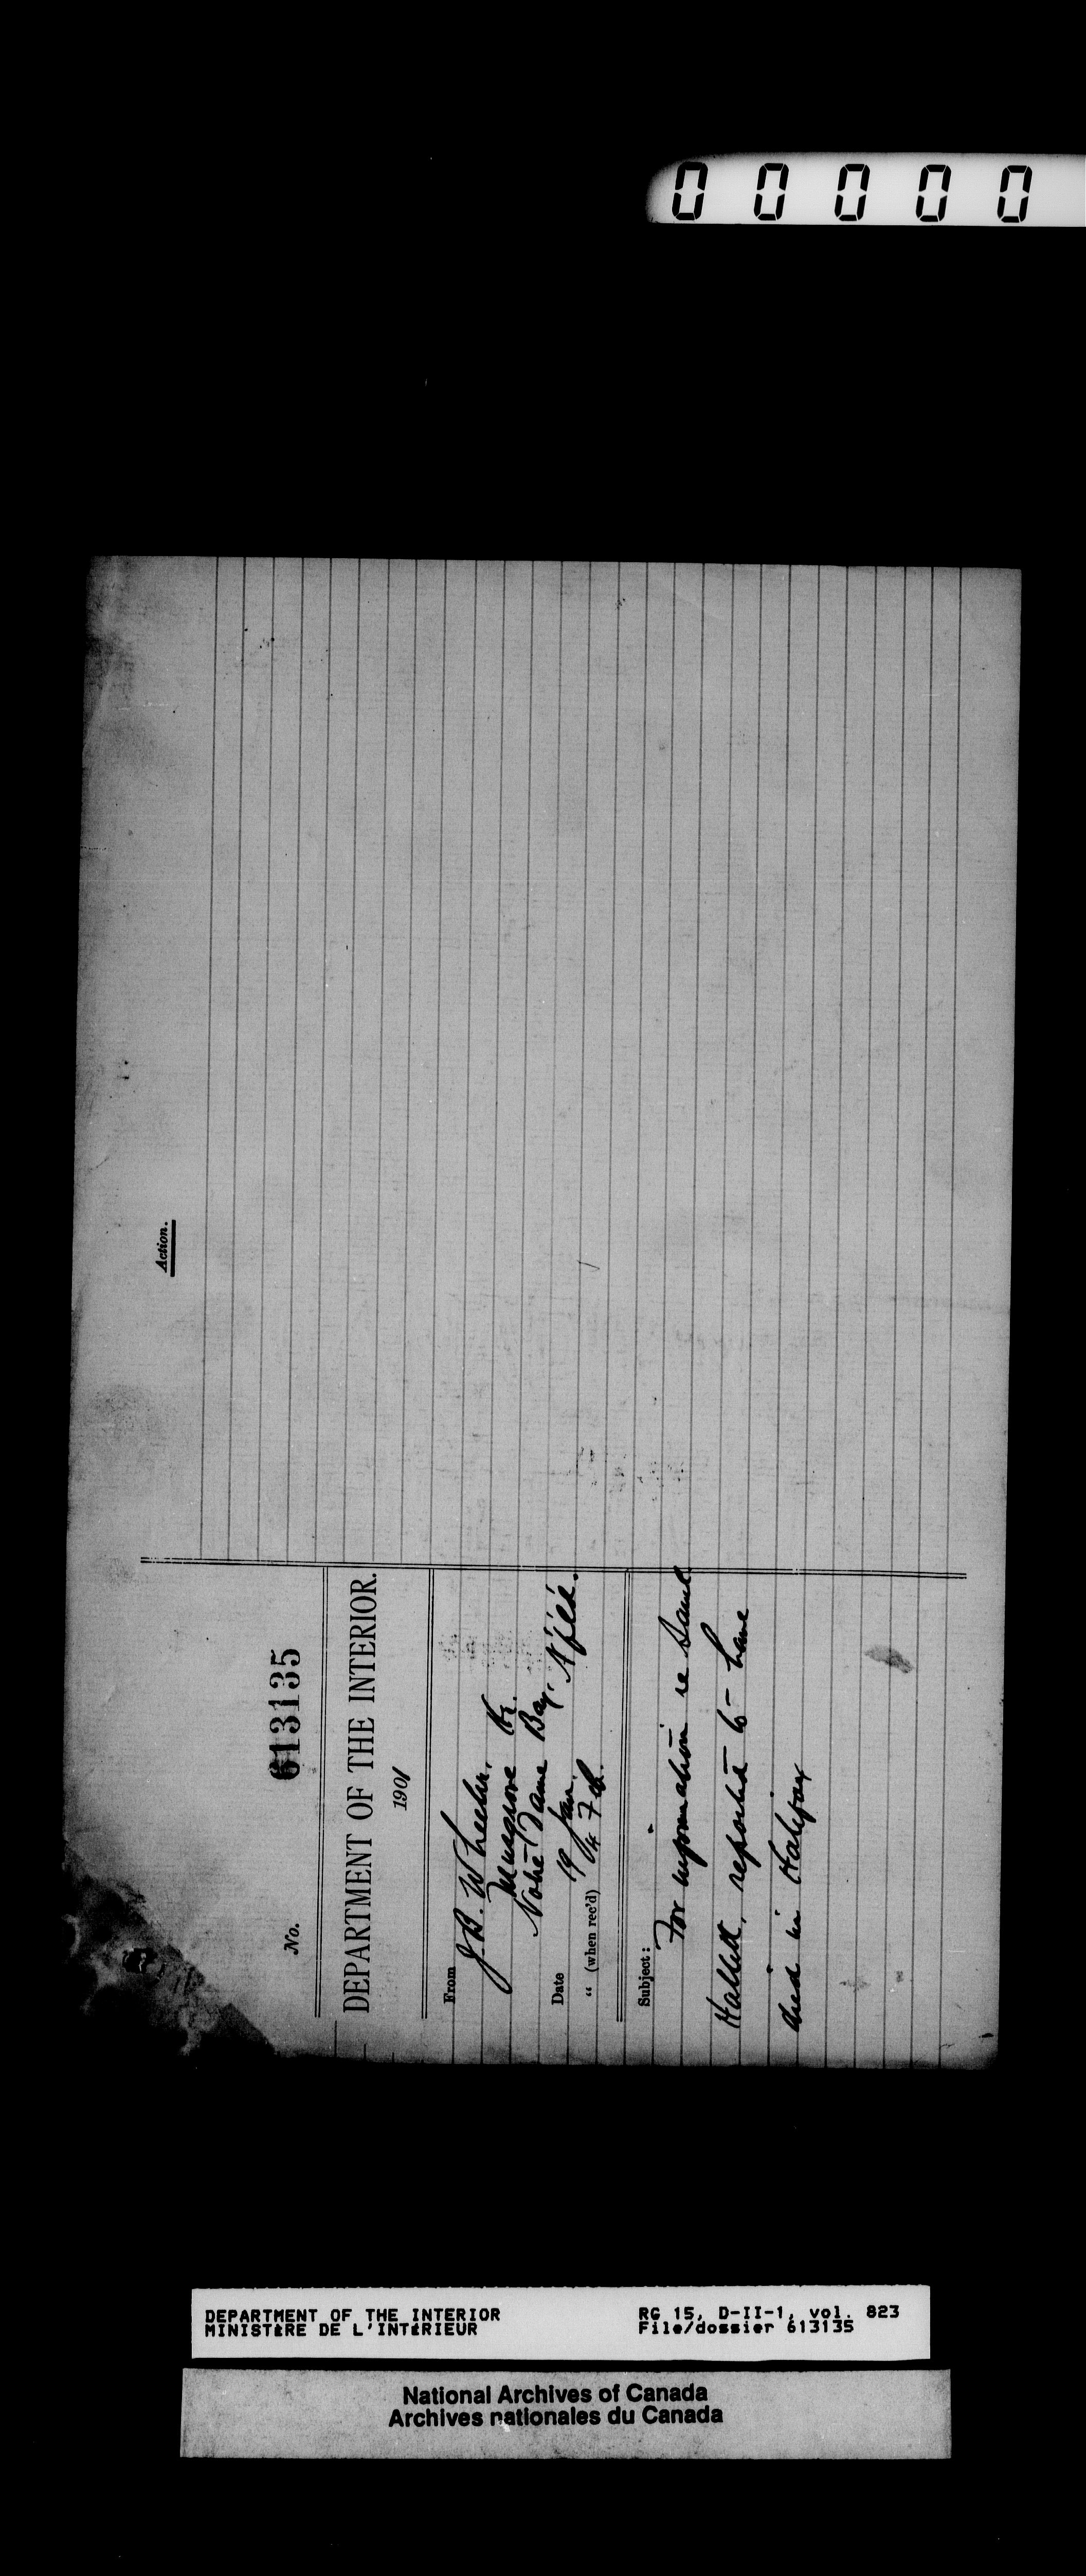 00000
Action.
No. 613135
DEPARTMENT OF THE INTERIOR.
1901
From J. B. Wheeler,
Musgrove Hr.
Notre Dame Bay, Nfld.
Date 19 Jan.
“ (when rec'd) 14 Feb.
Subject:
For information re Saml.
Hallett, reported to have
died in Halifax
DEPARTMENT OF THE INTERIOR
MINISTÈRE DE L'INTÉRIEUR
RG 15, D-II-1, vol. 823
File/dossier 613135
National Archives of Canada
Archives nationales du Canada